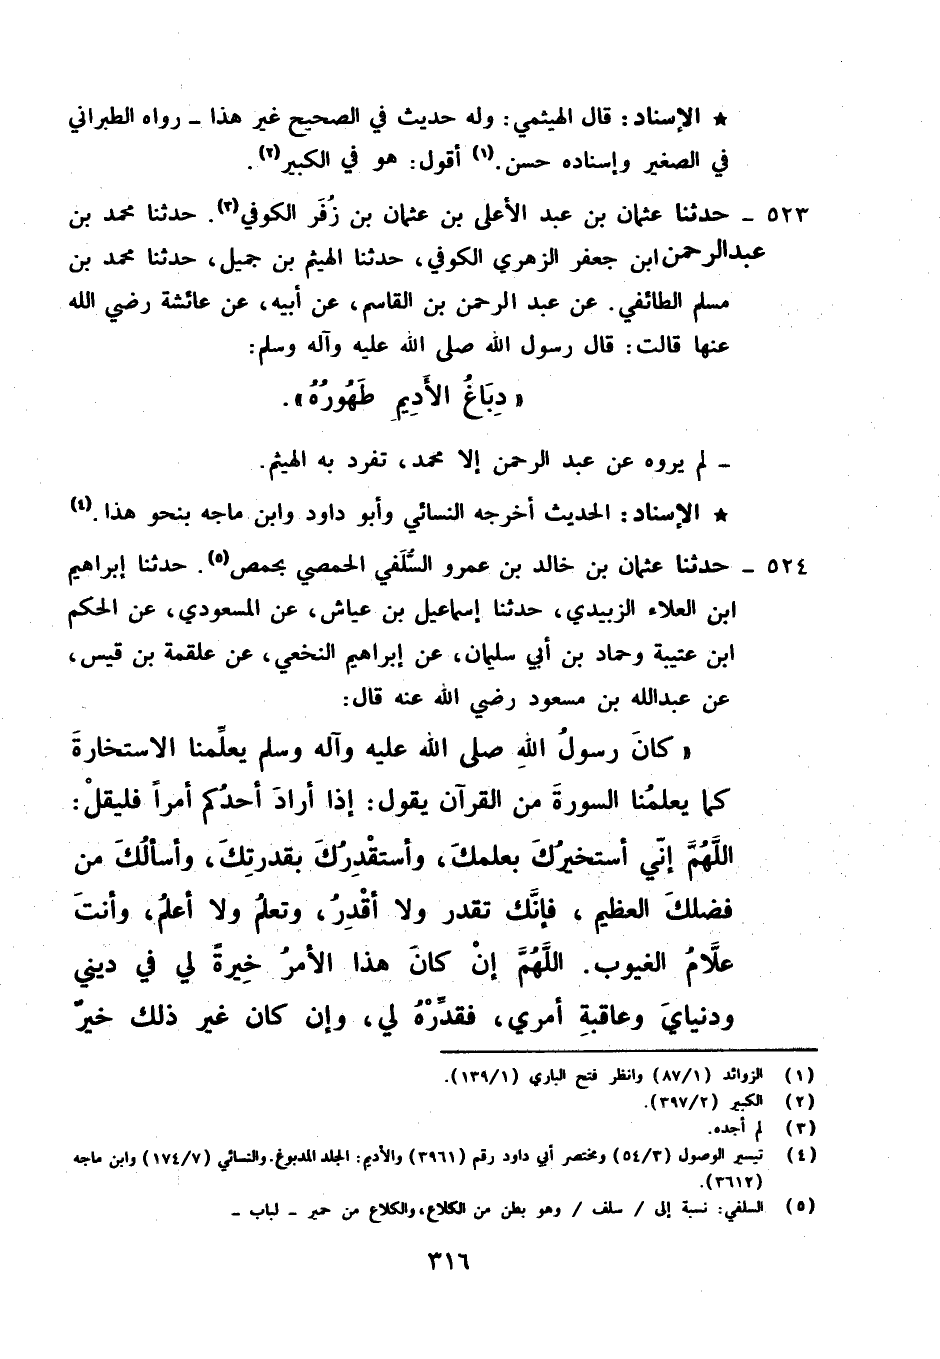 ★ الإسناد: قال الهيثمي: وله حديث في الصحيح غير هذا ـ رواه الطبراني
في الصغير وإسناده حسن.(١) أقول: هو في الكبير(٢).
٥٢٣ ـ حدثنا عثمان بن عبد الأعلى بن عثمان بن زُفَر الكوفي(٣). حدثنا محمد بن
عبدالرحمن ابن جعفر الزهري الكوفي، حدثنا الهيثم بن جميل، حدثنا محمد بن
مسلم الطائفي. عن عبد الرحمن بن القاسم، عن أبيه، عن عائشة رضي الله
عنها قالت: قال رسول الله صلى الله عليه وآله وسلم:
« دِبَاغُ الأَدِيمِ طَهُورُهُ».
ـ لم يروه عن عبد الرحمن إلا محمد، تفرد به الهيثم.
★ الإسناد: الحديث أخرجه النسائي وأبو داود وابن ماجه بنحو هذا.(٤)
٥٢٤ ـ حدثنا عثمان بن خالد بن عمرو السُّلَفي الحمصي بحمص(٥). حدثنا إبراهيم
ابن العلاء الزبيدي، حدثنا إسماعيل بن عياش، عن المسعودي، عن الحكم
ابن عتيبة وحماد بن أبي سليمان، عن إبراهيم النخعي، عن علقمة بن قيس،
عن عبدالله بن مسعود رضي الله عنه قال:
« كانَ رسولُ اللهِ صلى الله عليه وآله وسلم يعلِّمنا الاستخارةَ
كما يعلمُنا السورةَ من القرآن يقول: إذا أرادَ أحدُكم أمراً فليقلْ:
اللَّهُمَّ إنّي أستخيرُكَ بعلمكَ، وأستقْدِرُكَ بقدرتِكَ، وأسألُكَ من
فضلكَ العظيم ، فإنَّك تقدر ولا أقْدِرُ، وتعلمُ ولا أعلمُ، وأنتَ
علَّامُ الغيوب. اللَّهُمَّ إنْ كانَ هذا الأمرُ خِيرةً لي في ديني
ودنيايَ وعاقبةِ أمري، فقدِّرْهُ لي، وإن كان غير ذلك خيرٌ
(١) الزوائد (٨٧/١) وانظر فتح الباري (١٣٩/١).
(٢) الكبير (٣٩٧/٢).
(٣) لم أجده.
(٤) تيسير الوصول (٥٤/٣) ومختصر أبي داود رقم (٣٩٦١) والأديم: الجلد المدبوغ. والنسائي (١٧٤/٧) وابن ماجه
(٣٦١٢).
(٥) السلفي: نسبة إلى / سلف / وهو بطن من الكلاع، والكلاع من حمير ـ لباب ـ
٣١٦